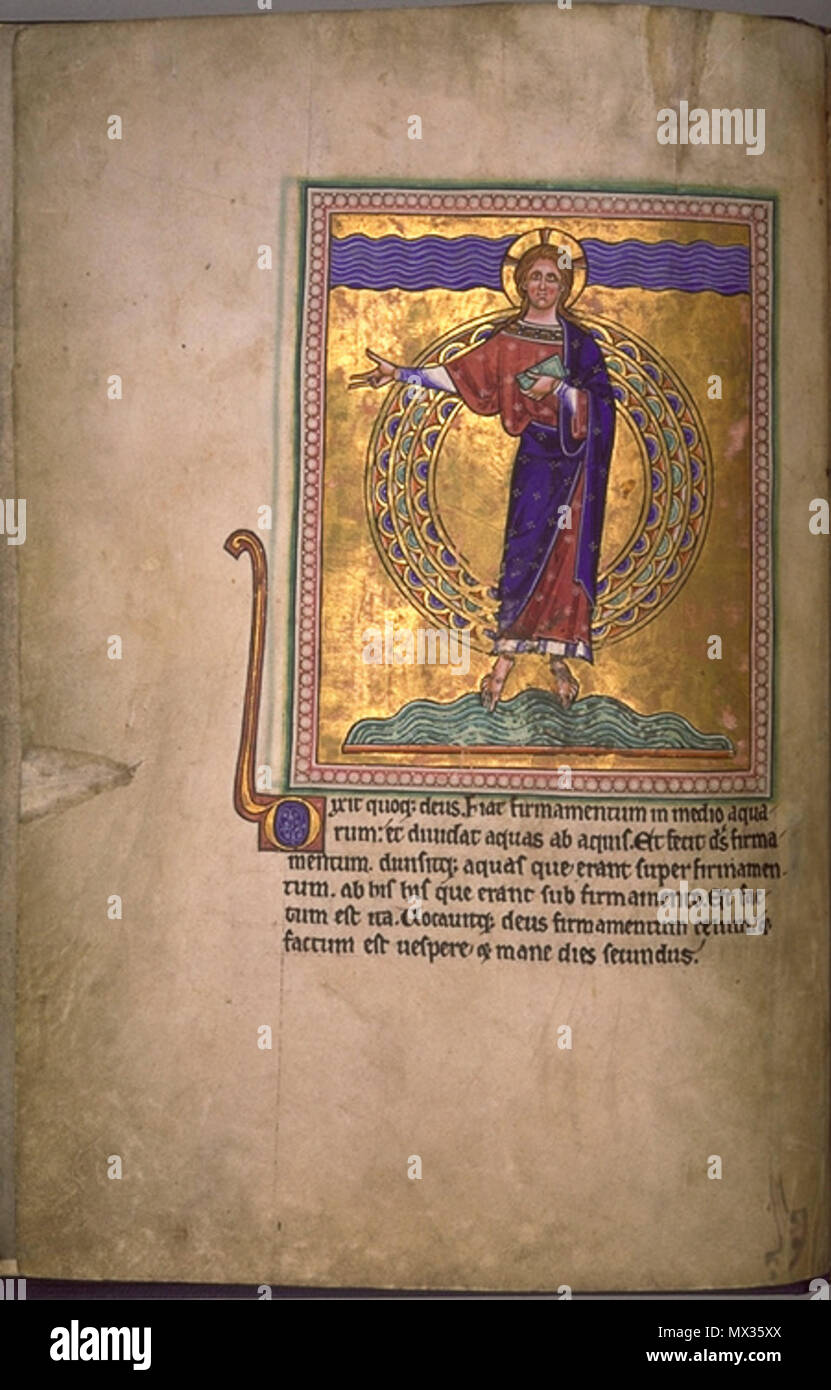 alamy
Dixit quoq; deus. Fiat firmamentum in medio aqua
rum: et diuidat aquas ab aquis. Et fecit ds firma
mentum. diuisitq; aquas que erant super firmamen
tum. ab his his que erant sub firmamento. Et fac
tum est ita. Uocauitq; deus firmamentum celum. &
factum est uespere & mane dies secundus.
alamy
Image ID: MX35XX
www.alamy.com